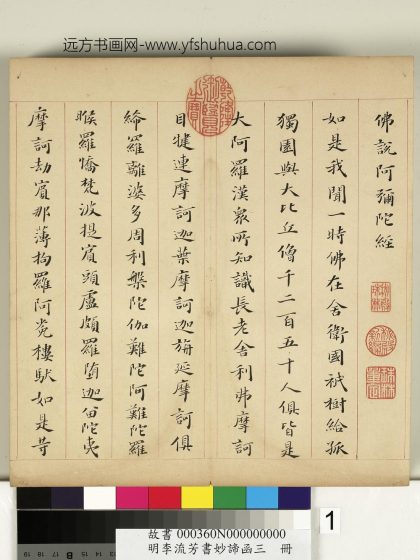 远方书画网-www.yfshuhua.com
佛說阿彌陀經
如是我聞一時佛在舍衛國祇樹給孤
獨園與大比丘僧千二百五十人俱皆是
大阿羅漢眾所知識長老舍利弗摩訶
目犍連摩訶迦葉摩訶迦旃延摩訶俱
絺羅離婆多周利槃陀伽難陀阿難陀羅
睺羅憍梵波提賓頭盧頗羅墮迦留陀夷
摩訶劫賓那薄拘羅阿㝹樓馱如是等
1
故書 000360N000000000
明李流芳書妙諦函三 冊